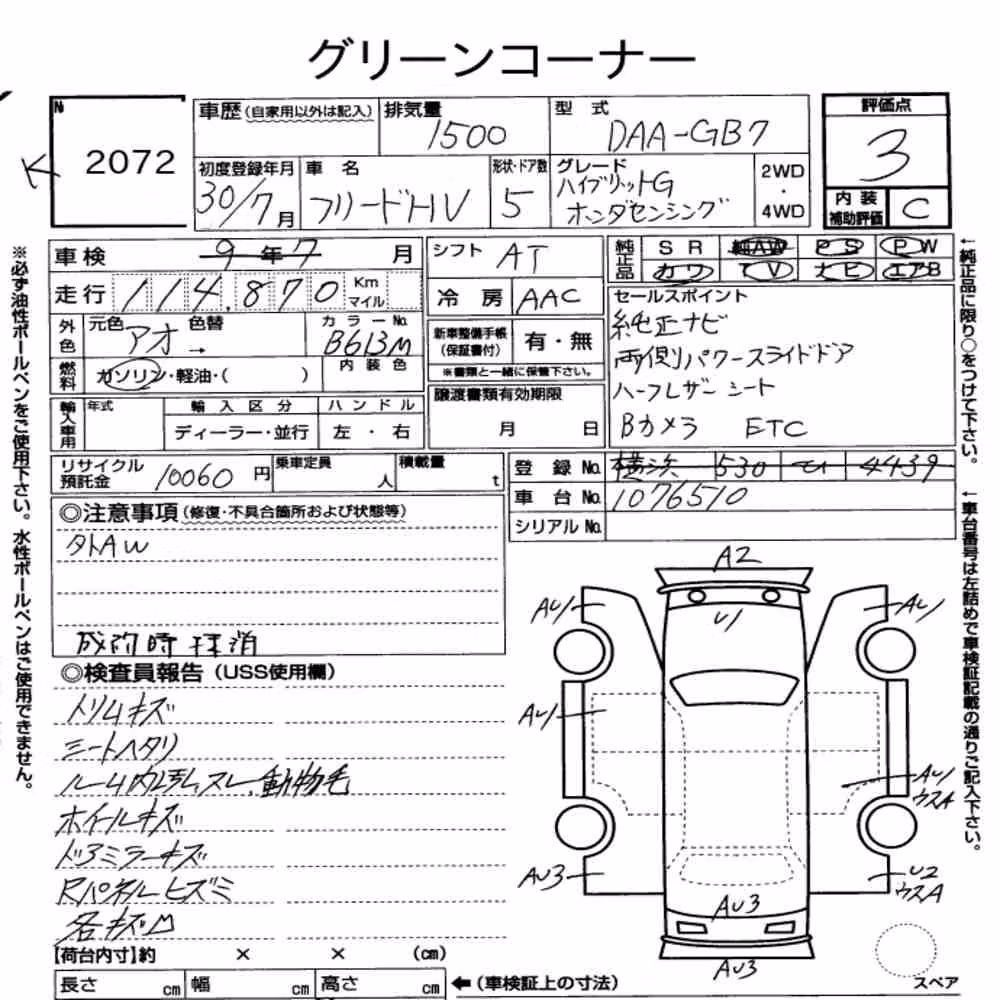 グリーンコーナー
K
№
2072
車歴(自家用以外は記入)
排気量
1500
型 式
DAA-GB7
評価点
3
初度登録年月
30/7月
車 名
フリードHV
形状・ドア数
5
グレード
ハイブリットG
ホンダセンシング
2WD
・
4WD
内 装
補助評価
C
車検 9年7月
シフト AT
純正品
SR 純AW PS PW
カワ TV ナビ エアB
走行 114,870 Km
マイル
冷 房 AAC
セールスポイント
純正ナビ
両側パワースライドドア
ハーフレザーシート
Bカメラ ETC
外色
元色 アオ → 色替
カラーNo.
B613M
新車整備手帳
(保証書付)
有・無
※書類と一緒に保管下さい。
燃料
ガソリン・軽油・( )
内 装 色
譲渡書類有効期限
月 日
輸入車用
年式
輸 入 区 分
ディーラー・並行
ハ ン ド ル
左 ・ 右
リサイクル
預託金
10060円
乗車定員
人
積載量
t
登 録 No. 横浜 530 4439
車 台 No. 1076510
シリアルNo.
◎注意事項(修復・不具合箇所および状態等)
外AW
◎検査員報告(USS使用欄)
トリムキズ
シートヘタリ
スレ、動物毛
ホイールキズ
ドアミラーキズ
Rパネルヒズミ
各キズ凹
【荷台内寸】約 × × (cm)
長さ cm 幅 cm 高さ cm
←(車検証上の寸法)
A2
U1
AU1
AU1
AU1
AU1
ウスA
AU3
U2
ウスA
AU3
AU3
スペア
※必ず油性ボールペンをご使用下さい。水性ボールペンはご使用できません。
←純正品に限り○をつけて下さい。
←車台番号は左詰めで車検証記載の通りご記入下さい。